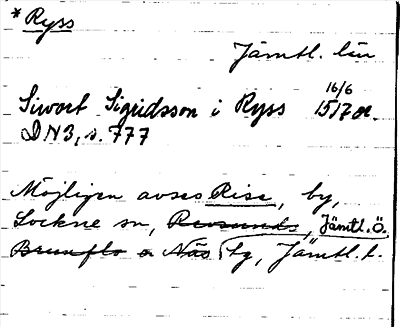 * Ryss
Jämtl. län
16/6
Siwort Sigridsson i Ryss 1517 or.
DN3, s. 777
Möjligen avses Rise, by,
Lockne sn, Revsunds, Jämtl. Ö.
Brunflo o Näs tg, Jämtl. l.